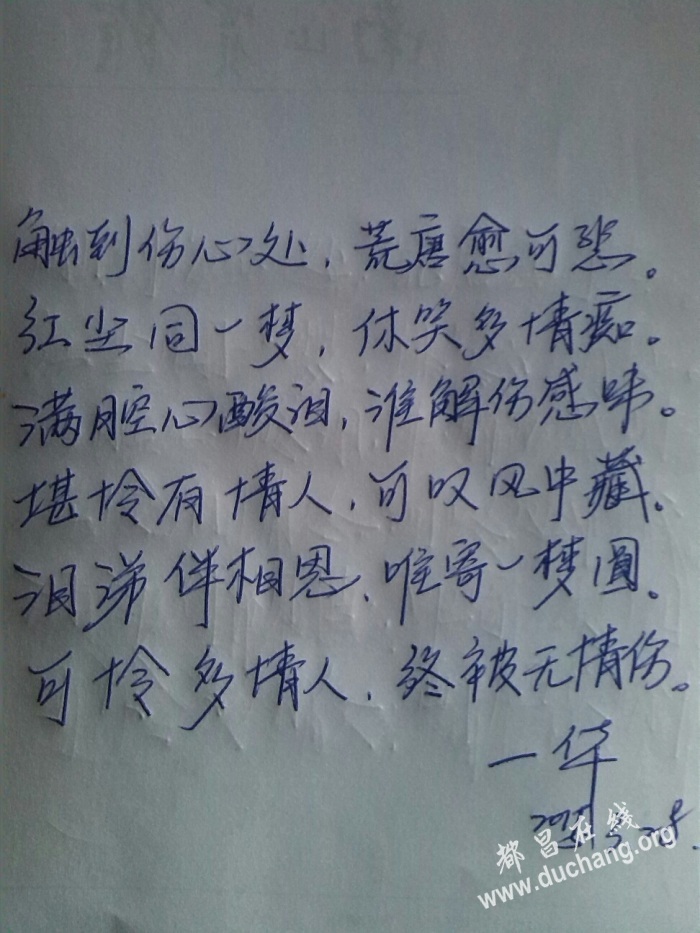 触到伤心处，荒唐愈可悲。
红尘同一梦，休笑多情痴。
满腔心酸泪，谁解伤感味。
堪怜有情人，可叹风中藏。
泪涕伴相思，唯寄一梦圆。
可怜多情人，终被无情伤。
一华
都昌在线
www.duchang.org